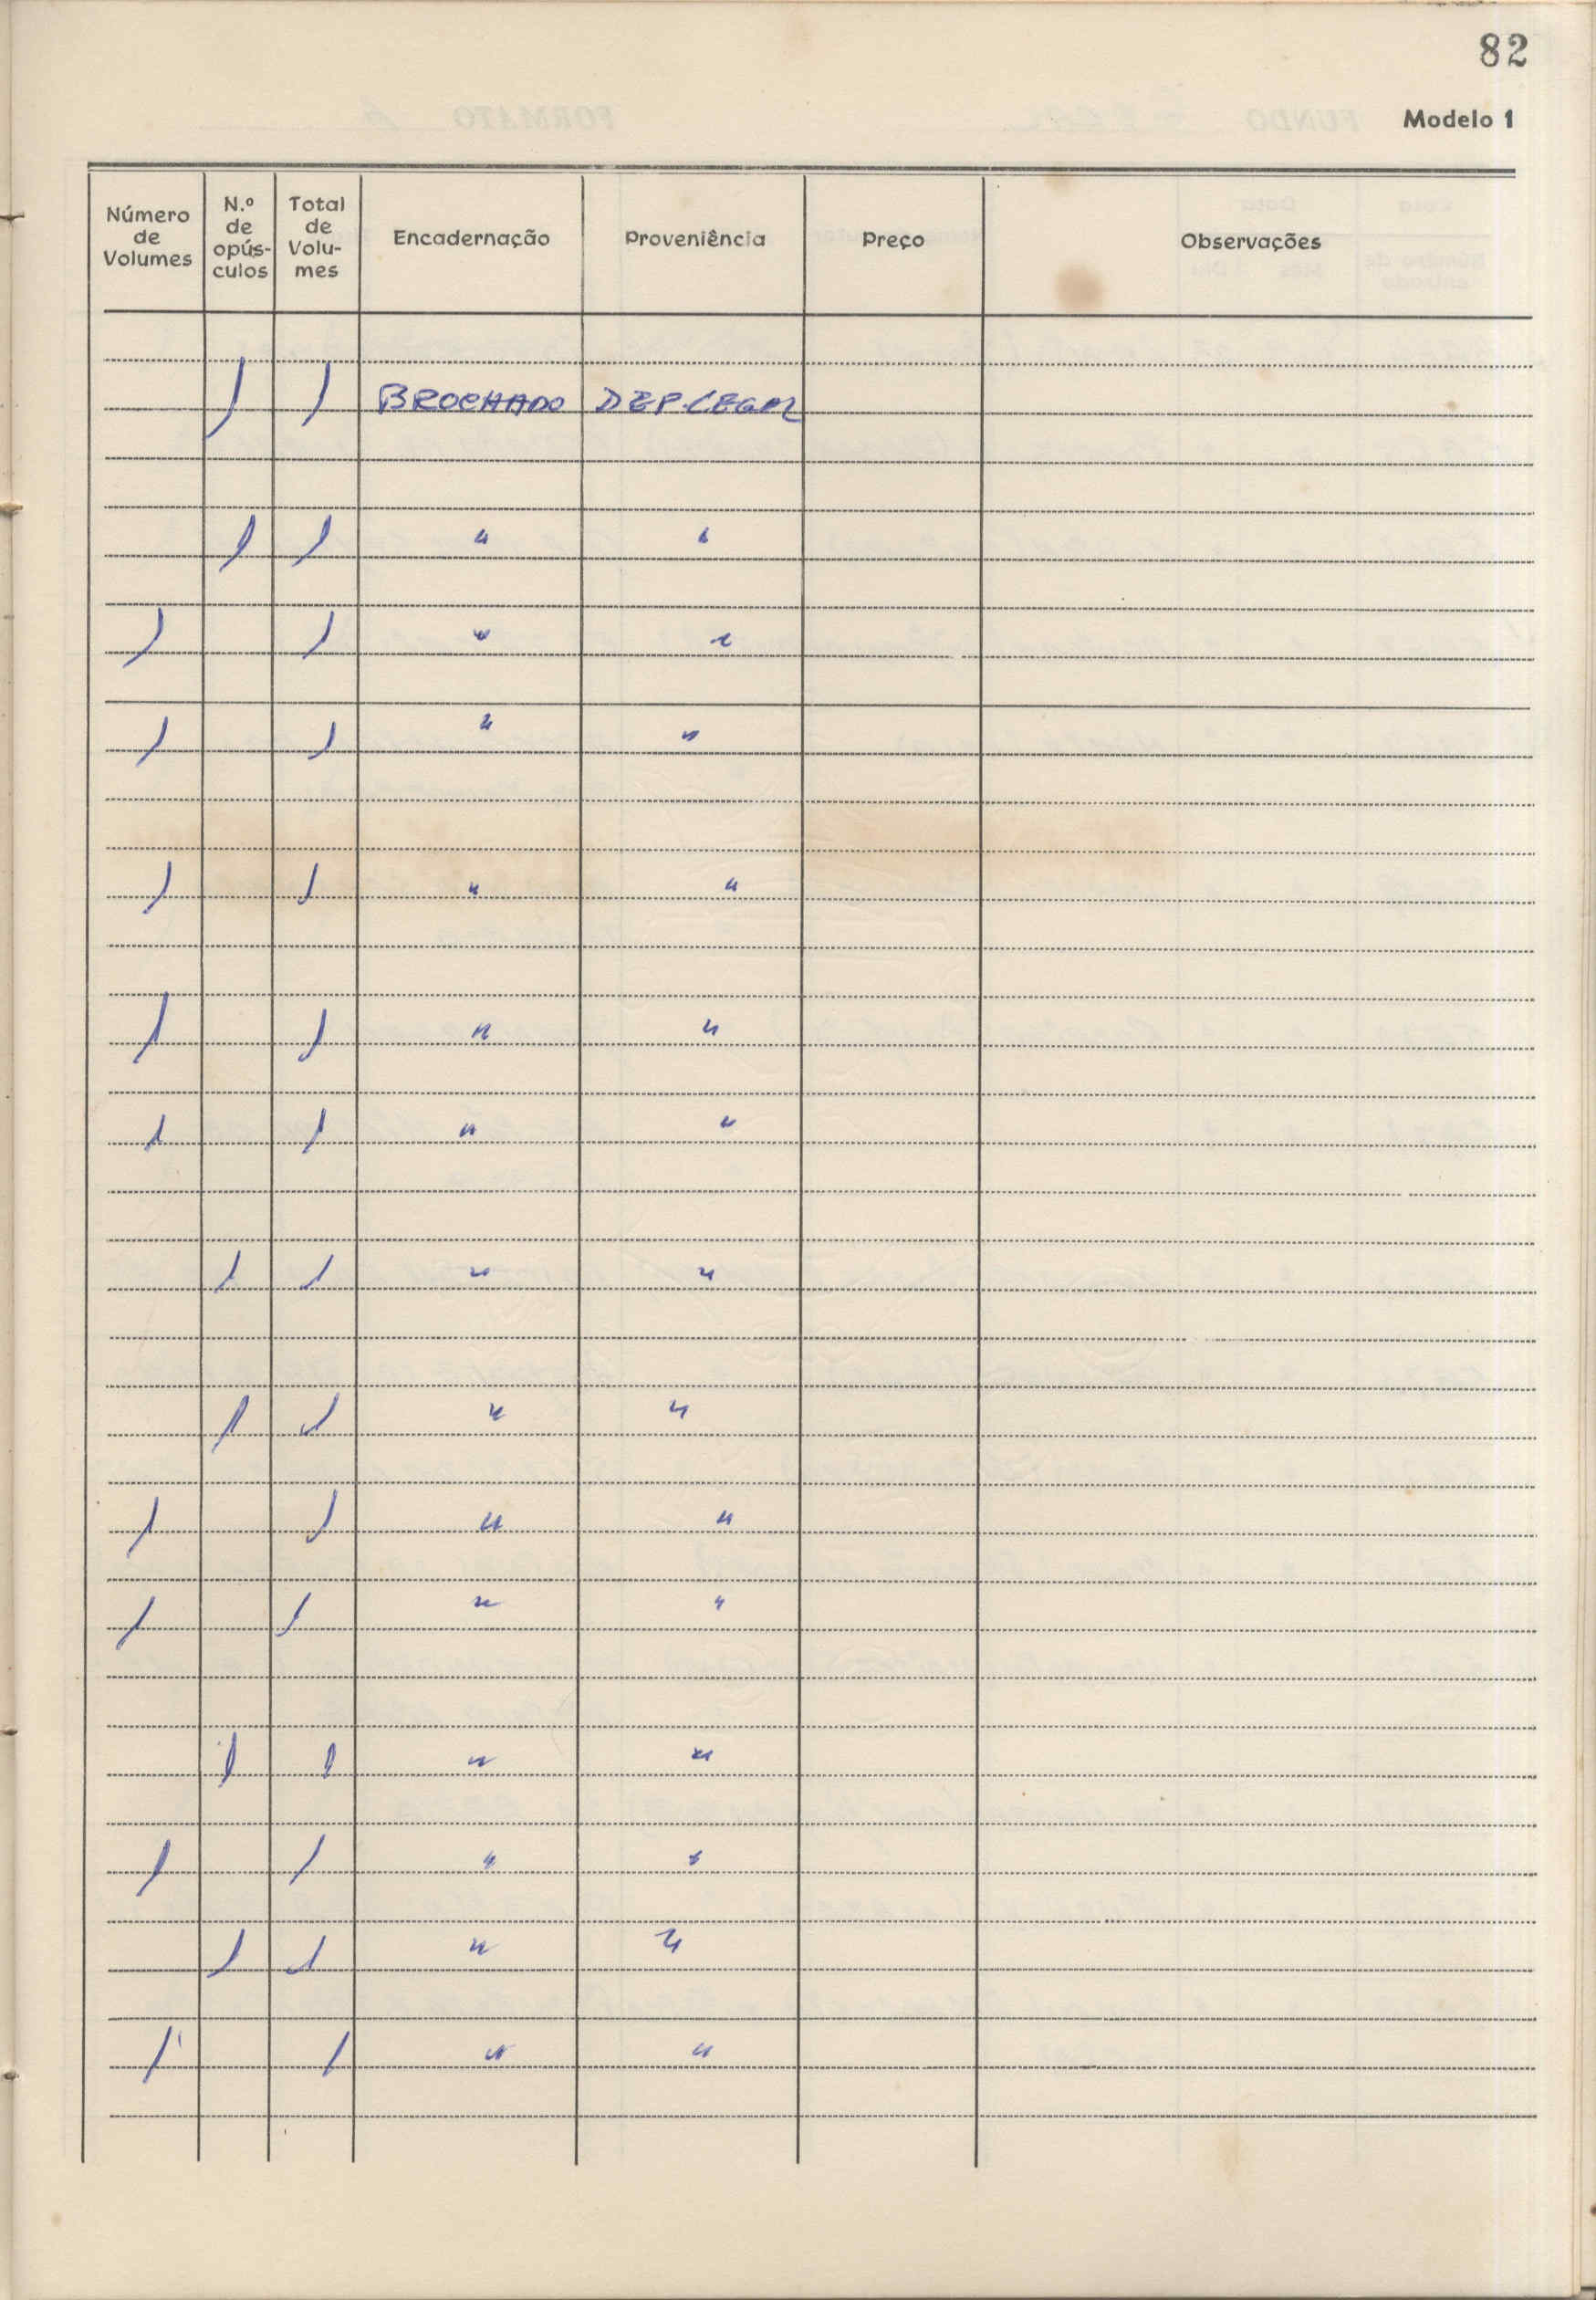 82
Modelo 1
Número de Volumes | N.º de opús-culos | Total de Volu-mes | Encadernação | Proveniência | Preço | Observações
1 1 BROCHADO DEP. LEGAL
1 1 " "
1 1 " "
1 1 " "
1 1 " "
1 1 " "
1 1 " "
1 1 " "
1 1 " "
1 1 " "
1 1 " "
1 1 " "
1 1 " "
1 1 " "
1 1 " "